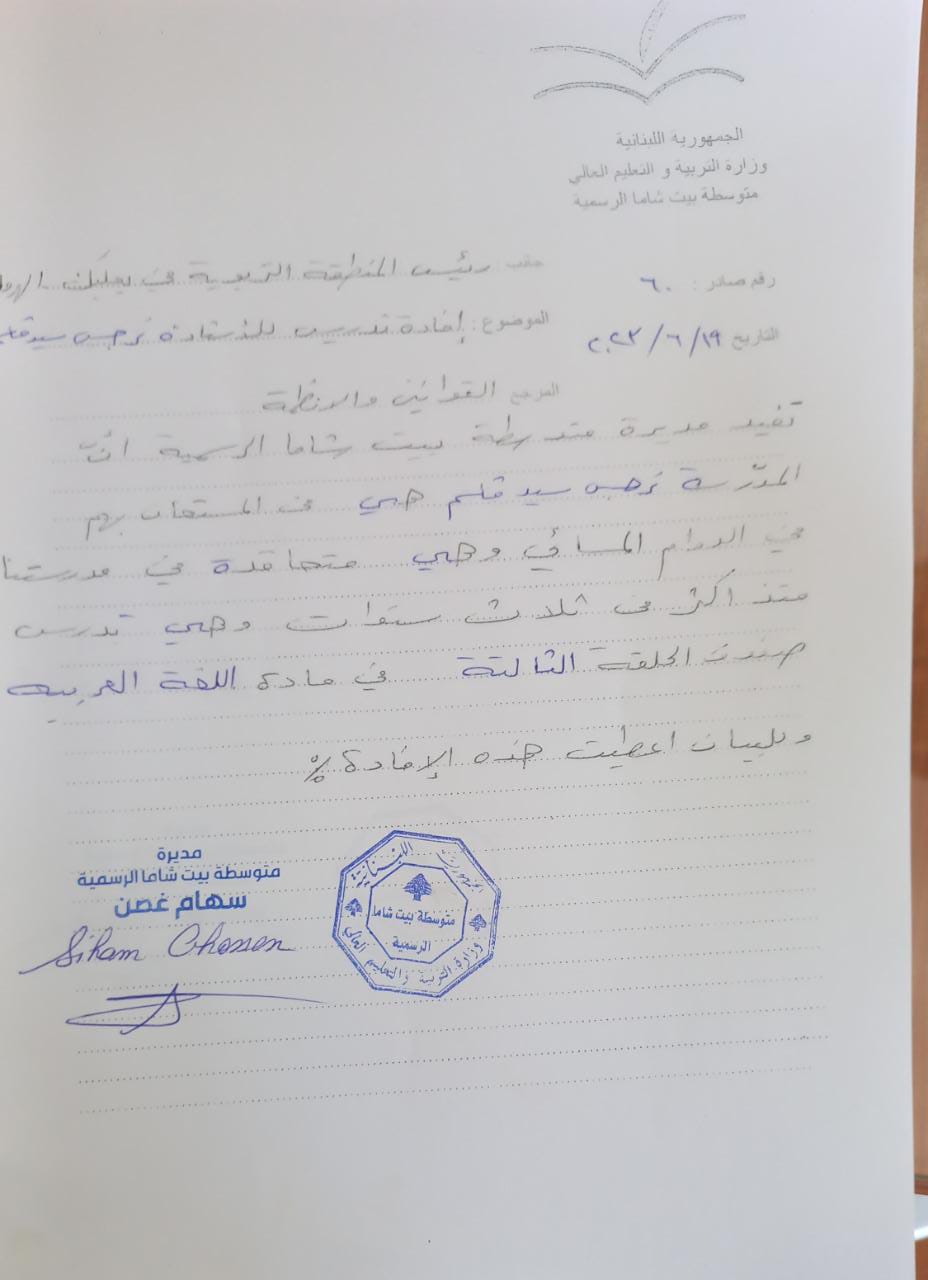 الجمهورية اللبنانية
وزارة التربية و التعليم العالي
متوسطة بيت شاما الرسمية
رقم صادر : ٦٠
جانب رئيس المنطقة التربوية في بعلبك
التاريخ ١٩ / ٦ / ٢٠٢٣
الموضوع : إفادة تدريس للأستاذة نرجس سيد قاسم
المرجع القوانين والانظمة
تفيد مديرة متوسطة بيت شاما الرسمية أنّ
المدرّسة نرجس سيد قاسم هي من المستعان بهم
في الدوام المسائي وهي متعاقدة في مدرستنا
منذ اكثر من ثلاث سنوات وهي تدرس
صفوف الحلقة الثالثة في مادة اللغة العربيه
وللبيان اعطيت هذه الإفادة ./.
مديرة
متوسطة بيت شاما الرسمية
سهام غصن
Siham Ghossen
الجمهورية اللبنانية
متوسطة بيت شاما
الرسمية
وزارة التربية والتعليم العالي